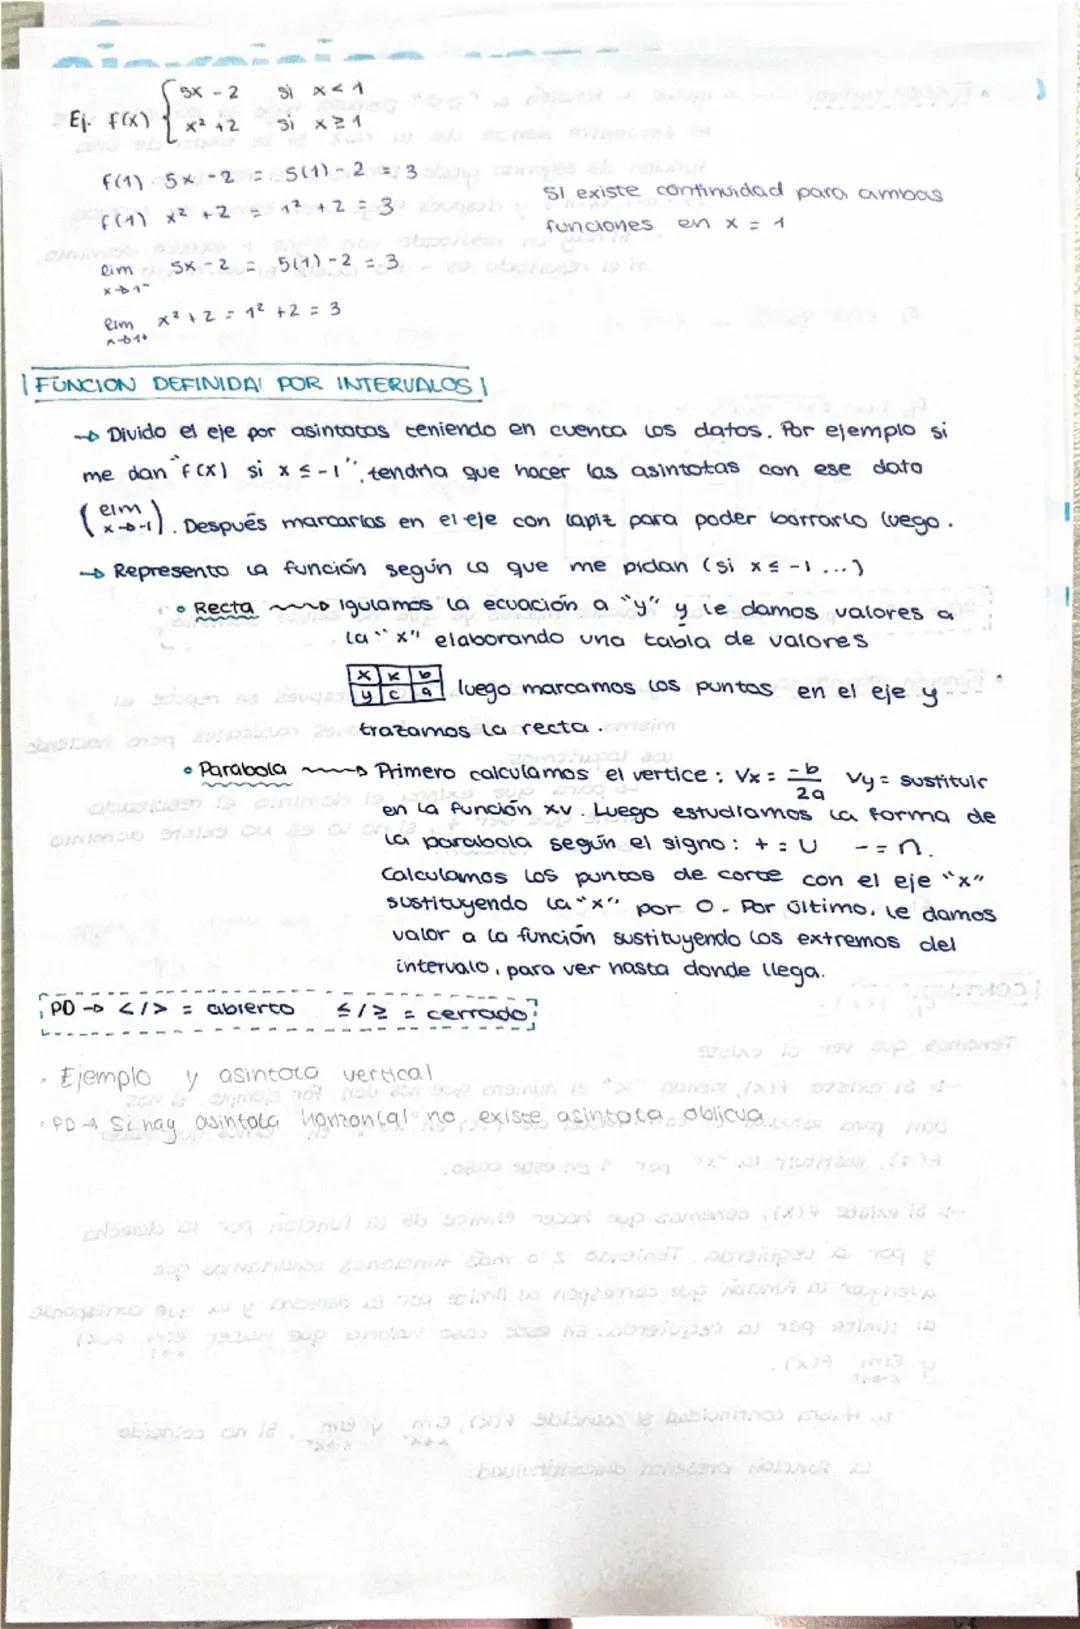 Ej. f(x) { 5x - 2 si x < 1
x² + 2 si x ≥ 1
f(1) 5x - 2 = 5(1) - 2 = 3
f(1) x² + 2 = 1² + 2 = 3
SI existe continuidad para ambas
funciones en x = 1
lim x→1⁻ 5x - 2 = 5(1) - 2 = 3
lim x→1⁺ x² + 2 = 1² + 2 = 3
| FUNCION DEFINIDA POR INTERVALOS |
→ Divido el eje por asintotas teniendo en cuenta los datos. Por ejemplo si
me dan "f(x) si x ≤ -1", tendria que hacer las asintotas con ese dato
(lim x→-1). Después marcarlas en el eje con lapiz para poder borrarlo luego.
→ Represento la función según lo que me pidan (si x ≤ -1 ...)
• Recta → Igulamos la ecuación a "y" y le damos valores a
la "x" elaborando una tabla de valores
x | k | b
y | c | a luego marcamos los puntos en el eje y
trazamos la recta.
• Parabola → Primero calculamos el vertice: Vx = -b/2a Vy = sustituir
en la función xv. Luego estudiamos la forma de
la parabola según el signo: + = U - = ∩.
Calculamos los puntos de corte con el eje "x"
sustituyendo la "x" por 0. Por último, le damos
valor a la función sustituyendo los extremos del
intervalo, para ver hasta donde llega.
PD → </> = abierto ≤/≥ = cerrado
• Ejemplo y asintota vertical
• PD → Si hay asintota horizontal no existe asintota oblicua